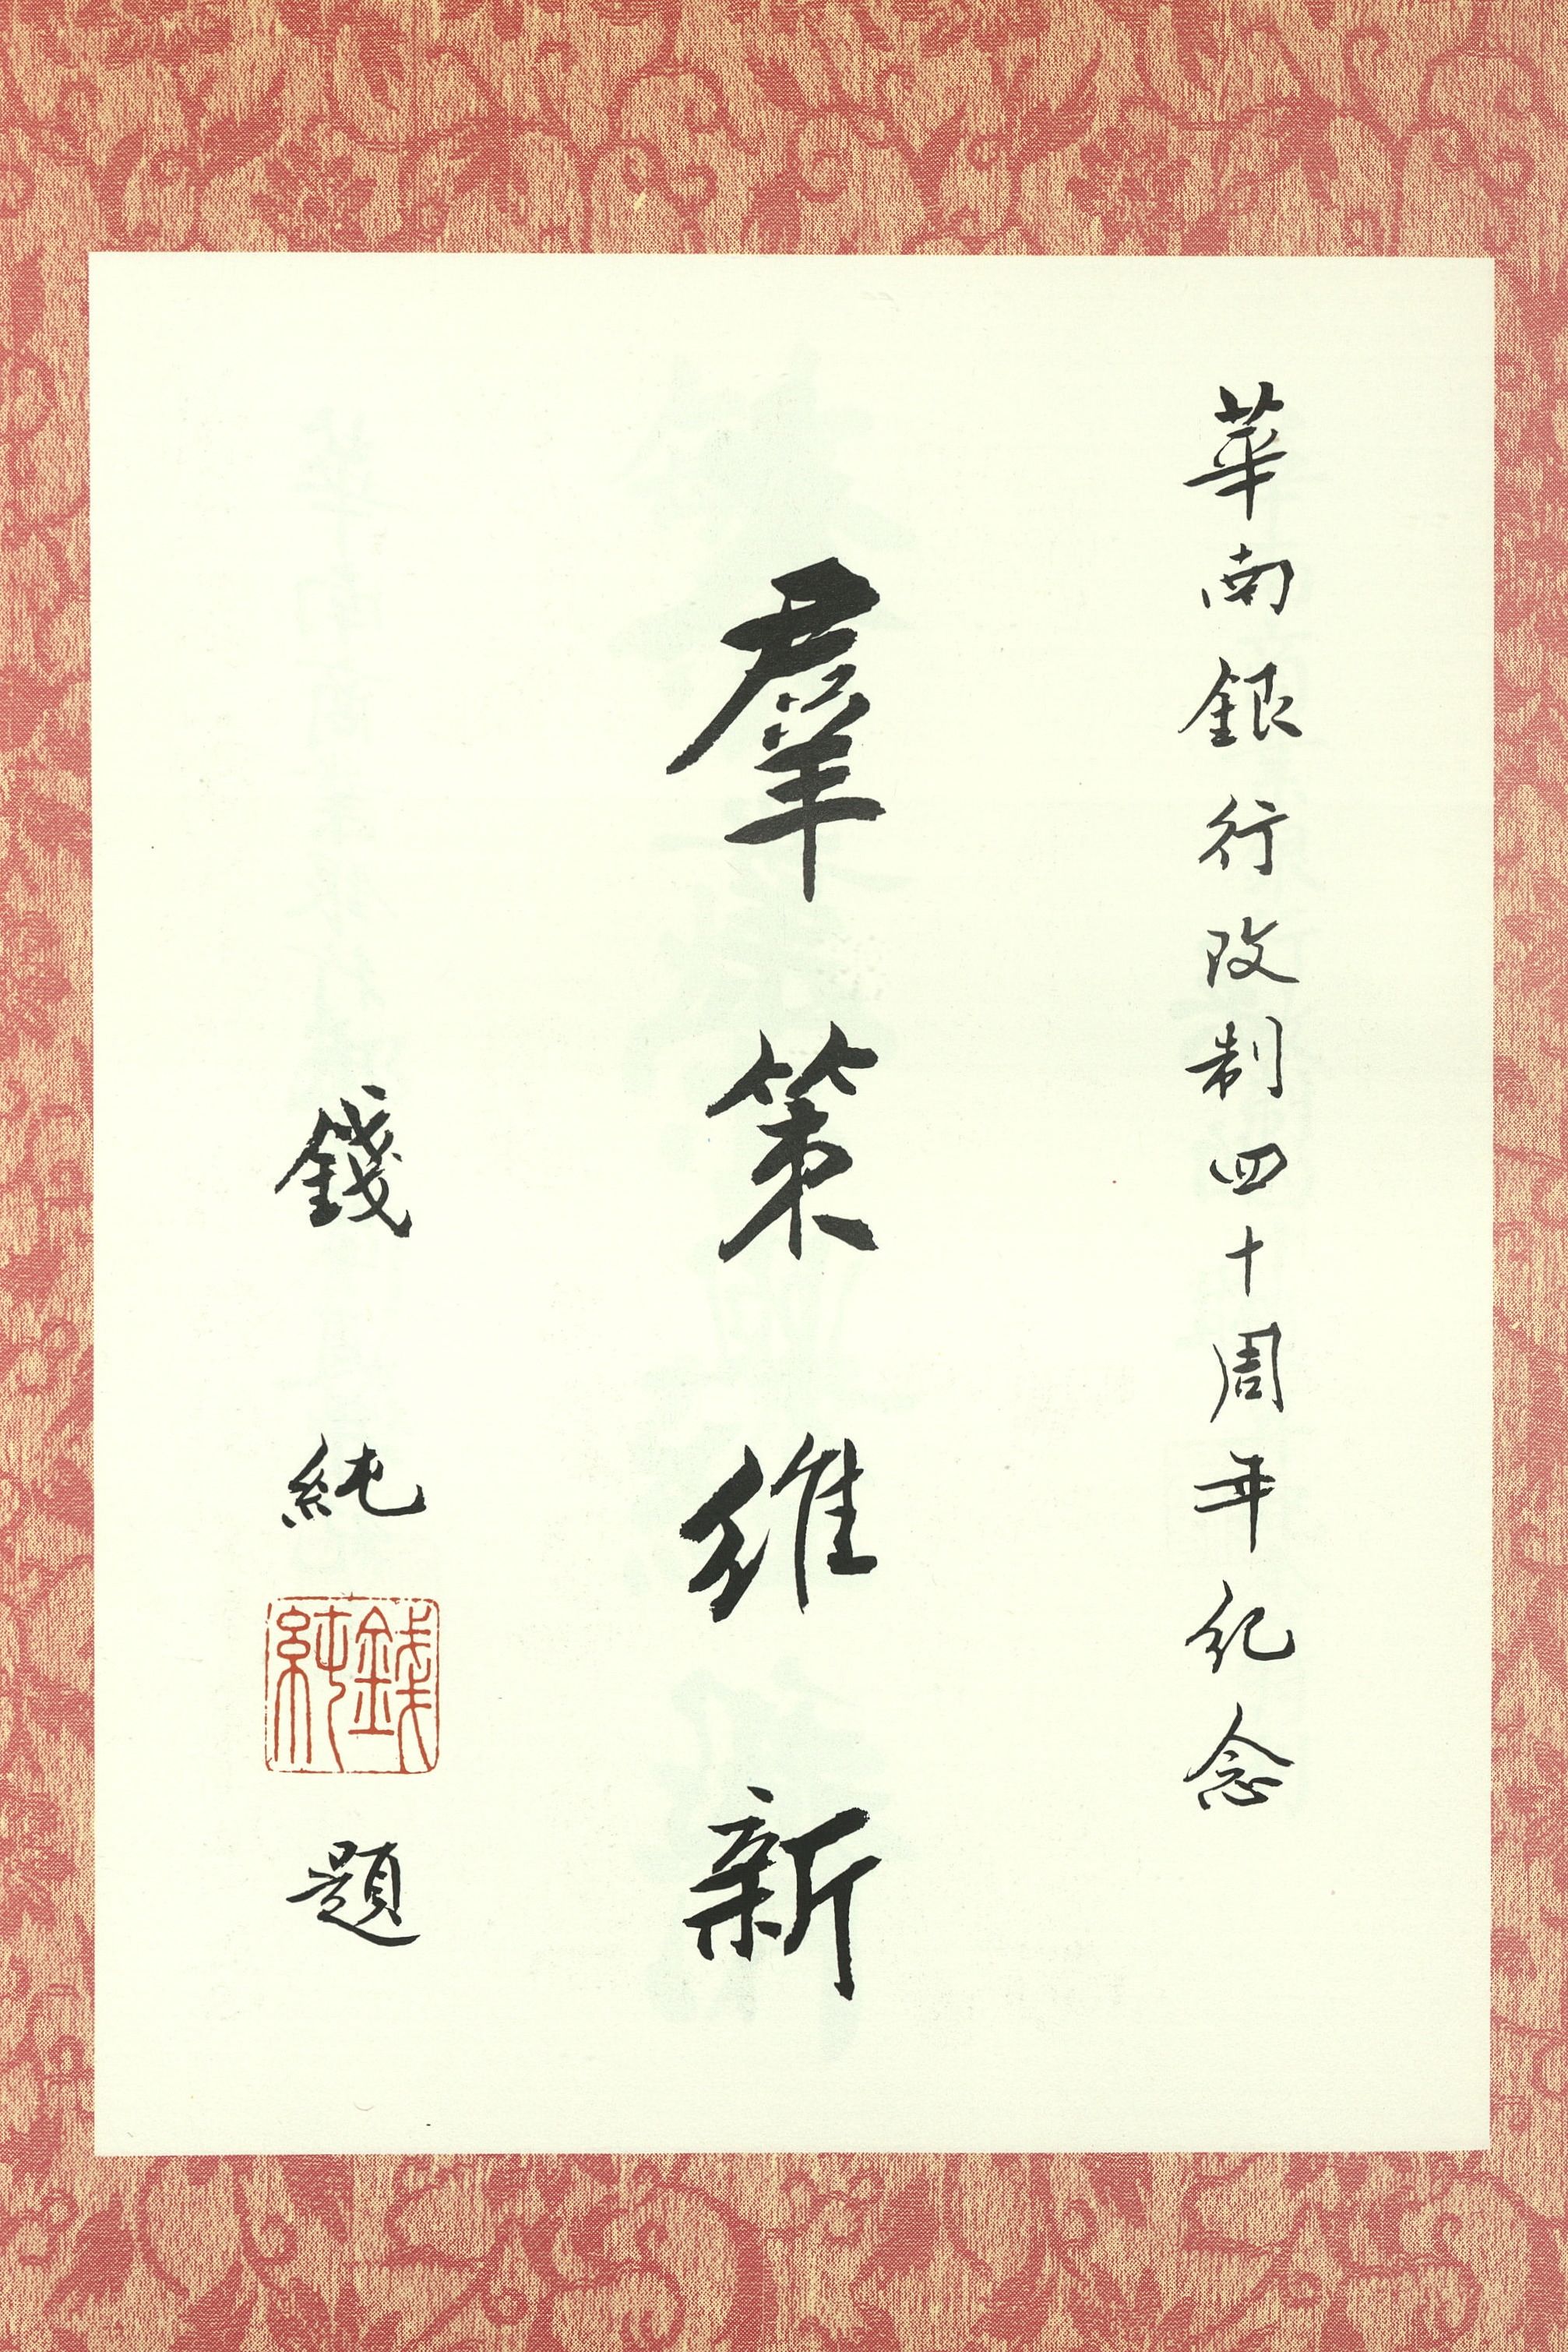 華南銀行改制四十周年紀念
羣策維新
錢純
錢純
題